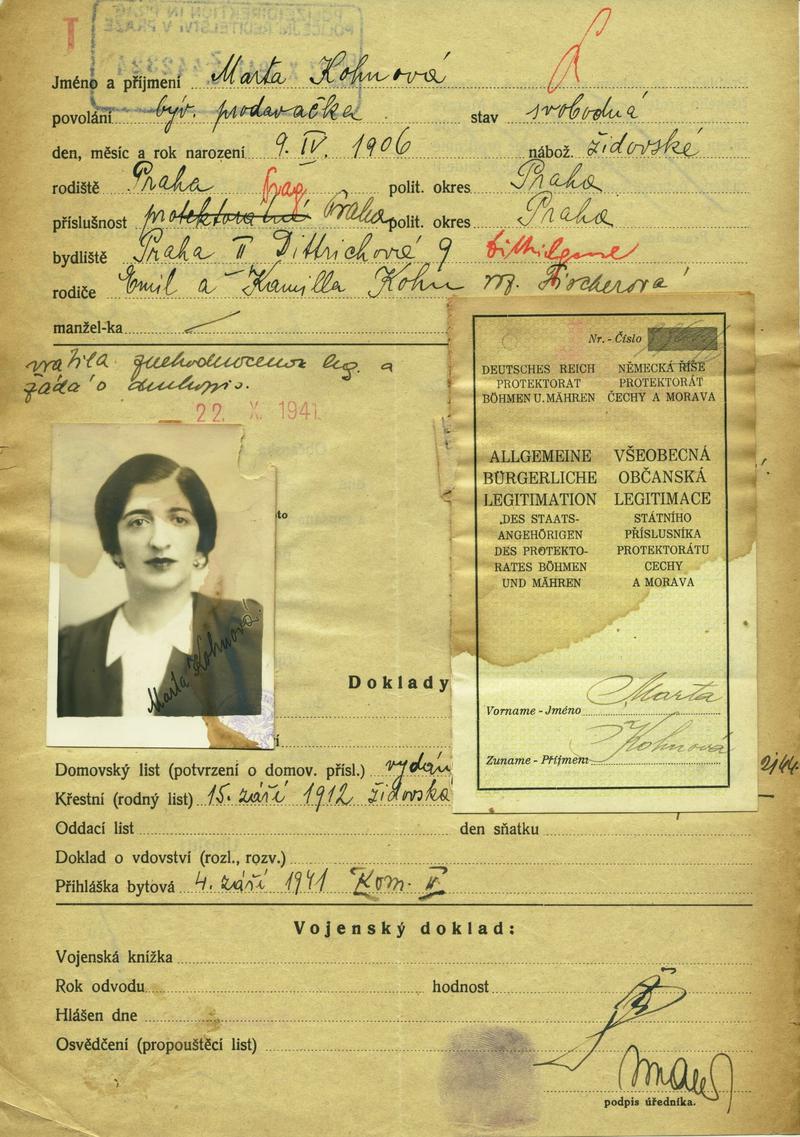 Jméno a příjmení Marta Kohnová
povolání býv. prodavačka stav svobodná
den, měsíc a rok narození 9. IV. 1906 nábož. židovské
rodiště Praha Prag polit. okres Praha
příslušnost protektorátní Praha polit. okres Praha
bydliště Praha II Dittrichová 9
rodiče Emil a Kamilla Kohn roz. Fischerová
manžel-ka
vrátila leg. a
žádá o
22. X. 1941
Marta Kohnová
Nr. - Číslo
DEUTSCHES REICH NĚMECKÁ ŘÍŠE
PROTEKTORAT PROTEKTORÁT
BÖHMEN U. MÄHREN ČECHY A MORAVA
ALLGEMEINE VŠEOBECNÁ
BÜRGERLICHE OBČANSKÁ
LEGITIMATION LEGITIMACE
DES STAATS- STÁTNÍHO
ANGEHÖRIGEN PŘÍSLUŠNÍKA
DES PROTEKTO- PROTEKTORÁTU
RATES BÖHMEN ČECHY
UND MÄHREN A MORAVA
Vorname - Jméno Marta
Zuname - Příjmení Kohnová
Doklady
Domovský list (potvrzení o domov. přísl.) vydán
Křestní (rodný list) 15. září 1912 židovská
Oddací list den sňatku
Doklad o vdovství (rozl., rozv.)
Přihláška bytová 4. září 1941 Kom. II
Vojenský doklad:
Vojenská knížka
Rok odvodu hodnost
Hlášen dne
Osvědčení (propouštěcí list)
podpis úředníka.